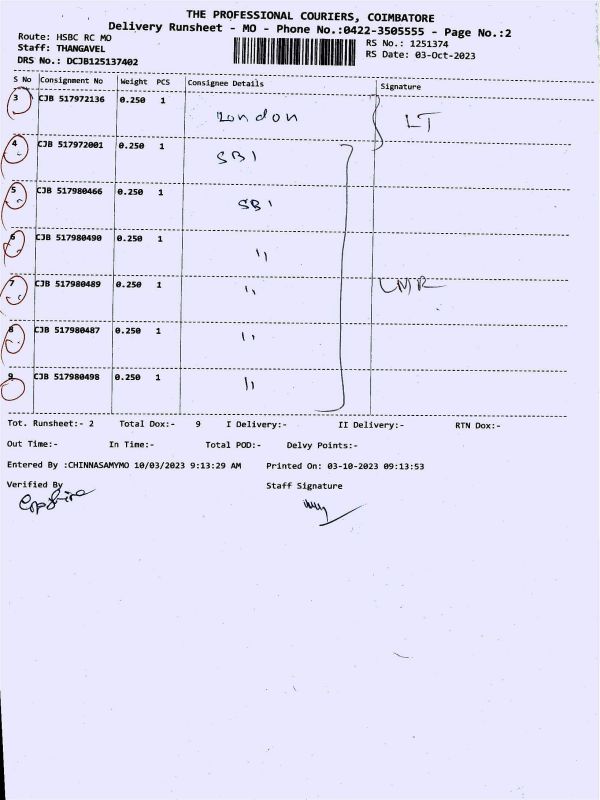 THE PROFESSIONAL COURIERS, COIMBATORE
Delivery Runsheet - MO - Phone No.:0422-3505555 - Page No.:2
Route: HSBC RC MO
RS No.: 1251374
Staff: THANGAVEL
RS Date: 03-Oct-2023
DRS No.: DCJB125137402
S No Consignment No Weight PCS Consignee Details Signature
3 CJB 517972136 0.250 1 London LT
4 CJB 517972001 0.250 1 SBI
5 CJB 517980466 0.250 1 SBI
6 CJB 517980490 0.250 1 "
7 CJB 517980489 0.250 1 " LMR
8 CJB 517980487 0.250 1 "
9 CJB 517980498 0.250 1 "
Tot. Runsheet:- 2 Total Dox:- 9 I Delivery:- II Delivery:- RTN Dox:-
Out Time:- In Time:- Total POD:- Delvy Points:-
Entered By :CHINNASAMYMO 10/03/2023 9:13:29 AM Printed On: 03-10-2023 09:13:53
Verified By Staff Signature